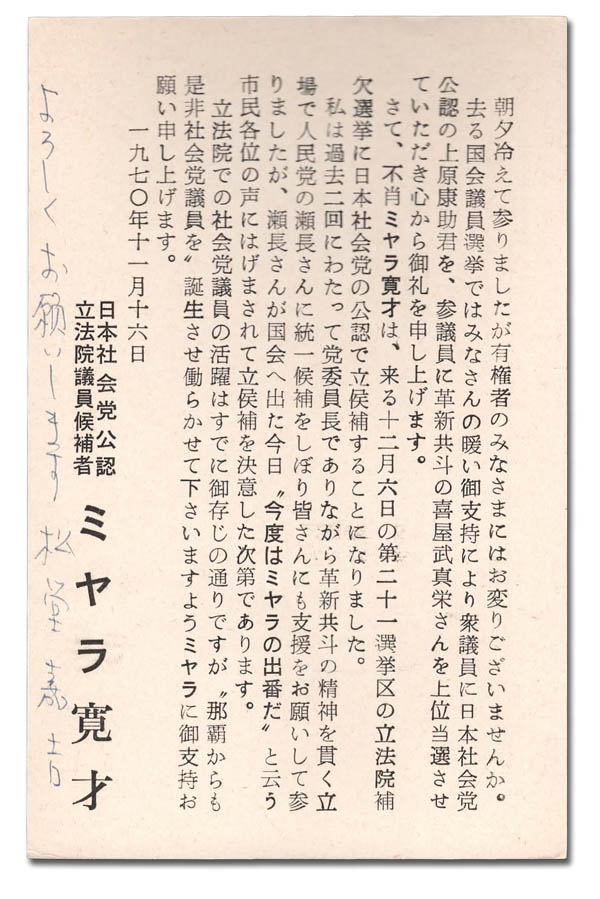 朝夕冷えて参りましたが有権者のみなさまにはお変りございませんか。
去る国会議員選挙ではみなさんの暖い御支持により衆議員に日本社会党
公認の上原康助君を、参議員に革新共斗の喜屋武真栄さんを上位当選させ
ていただき心から御礼を申し上げます。
さて、不肖ミヤラ寛才は、来る十二月六日の第二十一選挙区の立法院補
欠選挙に日本社会党の公認で立侯補することになりました。
私は過去二回にわたって党委員長でありながら革新共斗の精神を貫く立
場で人民党の瀬長さんに統一候補をしぼり皆さんにも支援をお願いして参
りましたが、瀬長さんが国会へ出た今日〝今度はミヤラの出番だ〟と云う
市民各位の声にはげまされて立侯補を決意した次第であります。
立法院での社会党議員の活躍はすでに御存じの通りですが〝那覇からも
是非社会党議員を〟誕生させ働らかせて下さいますようミヤラに御支持お
願い申し上げます。
一九七〇年十一月十六日
日本社会党公認
立法院議員候補者
ミヤラ寛才
よろしくお願いします 松堂嘉吉